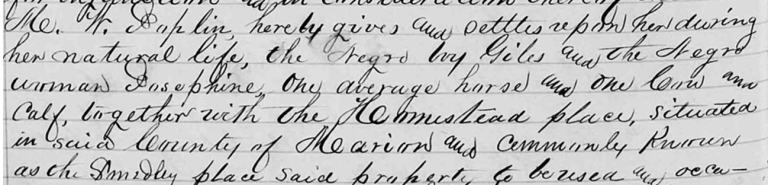 in consideration thereof
M. W. Poplin, hereby gives and settles upon her during
her natural life, the Negro boy Giles and the Negro
woman Josephine, One average horse and One Cow and
Calf, together with the Homestead place, situated
in said County of Marion and Commonly Known
as the Smedley place said property to be used and occu-